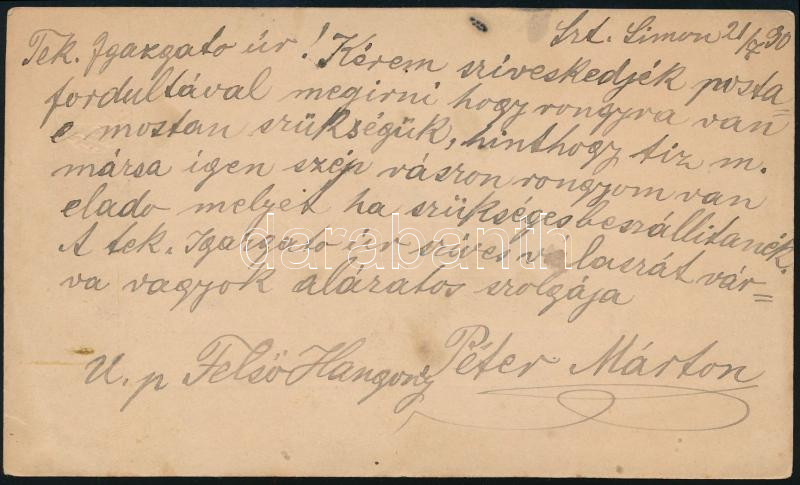 Szt. Simon 21/7 90
Tek. Igazgato úr! Kérem sziveskedjék posta=
fordultával megirni hogy rongyra van
e mostan szükségük, hinthogy tiz m.
mársa igen szép vászon rongyom van
elado melyet ha szükséges beszállitanék.
A tek. Igazgato úr szives valaszát vár=
va vagyok aláratos szolgája
U. p Felsö Hangony Péter Márton
darabanth